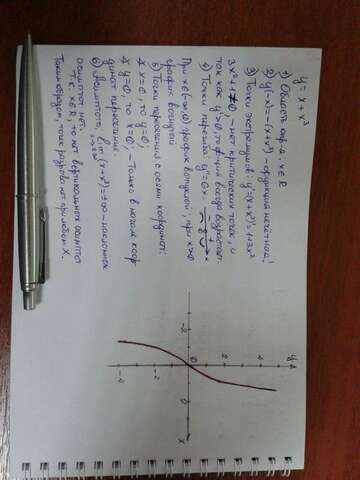 y = x + x³
1) Область опред. x ∈ R
2) y(-x) = -(x+x³) - функция нечётная!
3) Точки экстремумов: y' = (x+x³)' = 1+3x²
3x²+1≠0, - нет критических точек, и
так как y'>0, то ф-ция всегда возрастает.
4) Точки перегиба y'' = 6x.
- 0 + x
При x∈(-∞;0) график выпуклый, при x>0
график вогнутый
5) Точки пересечения с осями координат:
x=0, то y=0;
y=0, то x=0 - только в начале коор
динат пересечения.
6) Асимптоты, lim (x+x³) = ±∞ - наклонных
x→±∞
асимптот нет.
Т.к. x∈R, то нет вертикальных асимптот
Таким образом, точек разрыва нет при любом x.
y
4
2
0
-2
-4
x